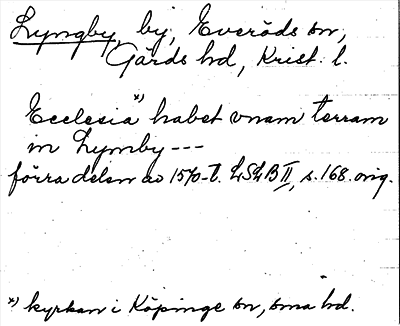 Lyngby, by, Everöds sn,
Gärds hd, Krist. l.
Ecclesia *) habet vnam terram
in Lymby ---
förra delen av 1570-t. LSLB II, s. 168. orig.
*) kyrkan i Köpinge sn, sma hd.